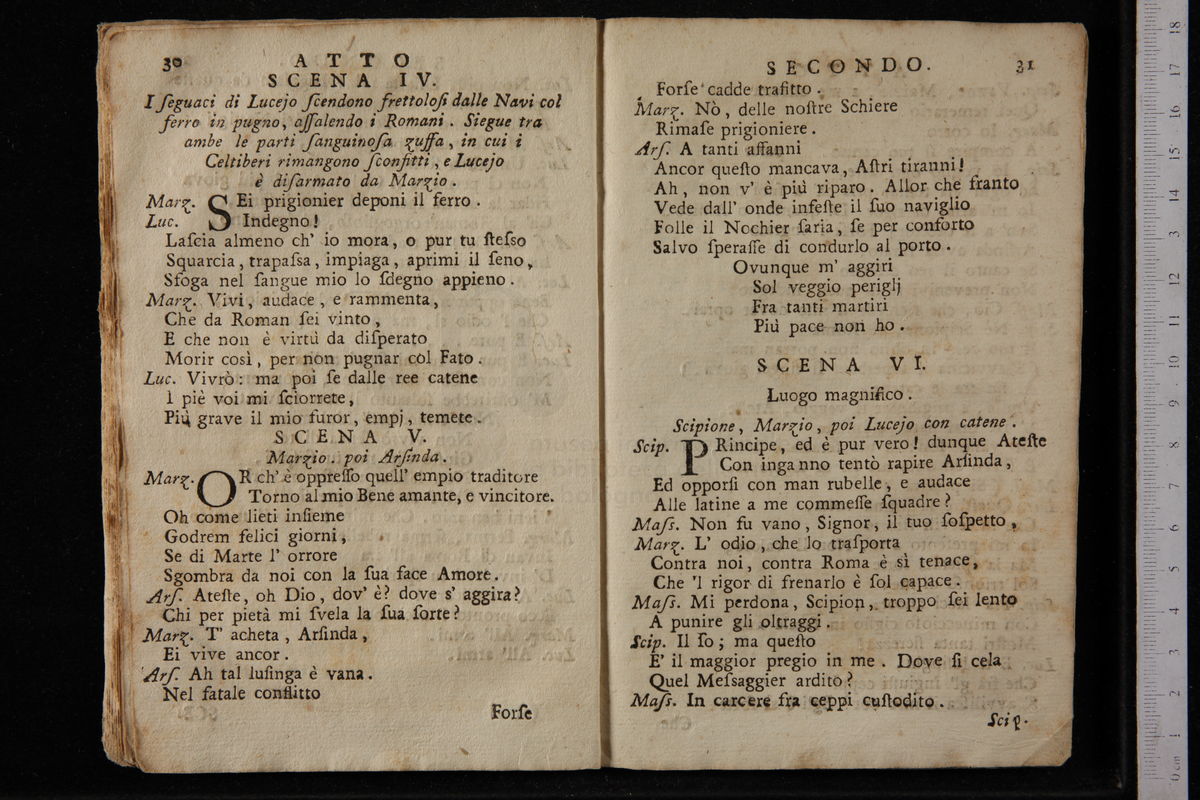 30
ATTO
SCENA IV.
I ſeguaci di Lucejo ſcendono frettoloſi dalle Navi col
ferro in pugno, aſſalendo i Romani. Siegue tra
ambe le parti ſanguinoſa zuffa, in cui i
Celtiberi rimangono ſconfitti, e Lucejo
è diſarmato da Marzio.
Marz. SEi prigionier deponi il ferro.
Luc. Indegno!
Laſcia almeno ch' io mora, o pur tu ſteſso
Squarcia, trapaſsa, impiaga, aprimi il ſeno,
Sfoga nel ſangue mio lo ſdegno appieno.
Marz. Vivi, audace, e rammenta,
Che da Roman ſei vinto,
E che non è virtù da diſperato
Morir così, per non pugnar col Fato.
Luc. Vivrò: ma poi ſe dalle ree catene
I piè voi mi ſciorrete,
Più grave il mio furor, empj, temete.
SCENA V.
Marzio. poi Arſinda.
Marz. OR ch' è oppreſſo quell' empio traditore
Torno al mio Bene amante, e vincitore.
Oh come lieti inſieme
Godrem felici giorni,
Se di Marte l' orrore
Sgombra da noi con la ſua face Amore.
Arſ. Ateſte, oh Dio, dov' è? dove s' aggira?
Chi per pietà mi ſvela la ſua ſorte?
Marz. T' acheta, Arſinda,
Ei vive ancor.
Arſ. Ah tal luſinga è vana.
Nel fatale conflitto
Forſe
SECONDO.
31
Forſe cadde trafitto.
Marz. Nò, delle noſtre Schiere
Rimaſe prigioniere.
Arſ. A tanti affanni
Ancor queſto mancava, Aſtri tiranni!
Ah, non v' è più riparo. Allor che franto
Vede dall' onde infeſte il ſuo naviglio
Folle il Nochier ſaria, ſe per conforto
Salvo ſperaſſe di condurlo al porto.
Ovunque m' aggiri
Sol veggio periglj
Fra tanti martiri
Più pace non ho.
SCENA VI.
Luogo magnifico.
Scipione, Marzio, poi Lucejo con catene.
Scip. PRincipe, ed è pur vero! dunque Ateſte
Con inganno tentò rapire Arſinda,
Ed opporſi con man rubelle, e audace
Alle latine a me commeſſe ſquadre?
Maſs. Non fu vano, Signor, il tuo ſoſpetto,
Marz. L' odio, che lo traſporta
Contra noi, contra Roma è sì tenace,
Che 'l rigor di frenarlo è ſol capace.
Maſs. Mi perdona, Scipion, troppo ſei lento
A punire gli oltraggi.
Scip. Il ſo; ma queſto
E' il maggior pregio in me. Dove ſi cela
Quel Meſsaggier ardito?
Maſs. In carcere fra ceppi cuſtodito.
Scip.